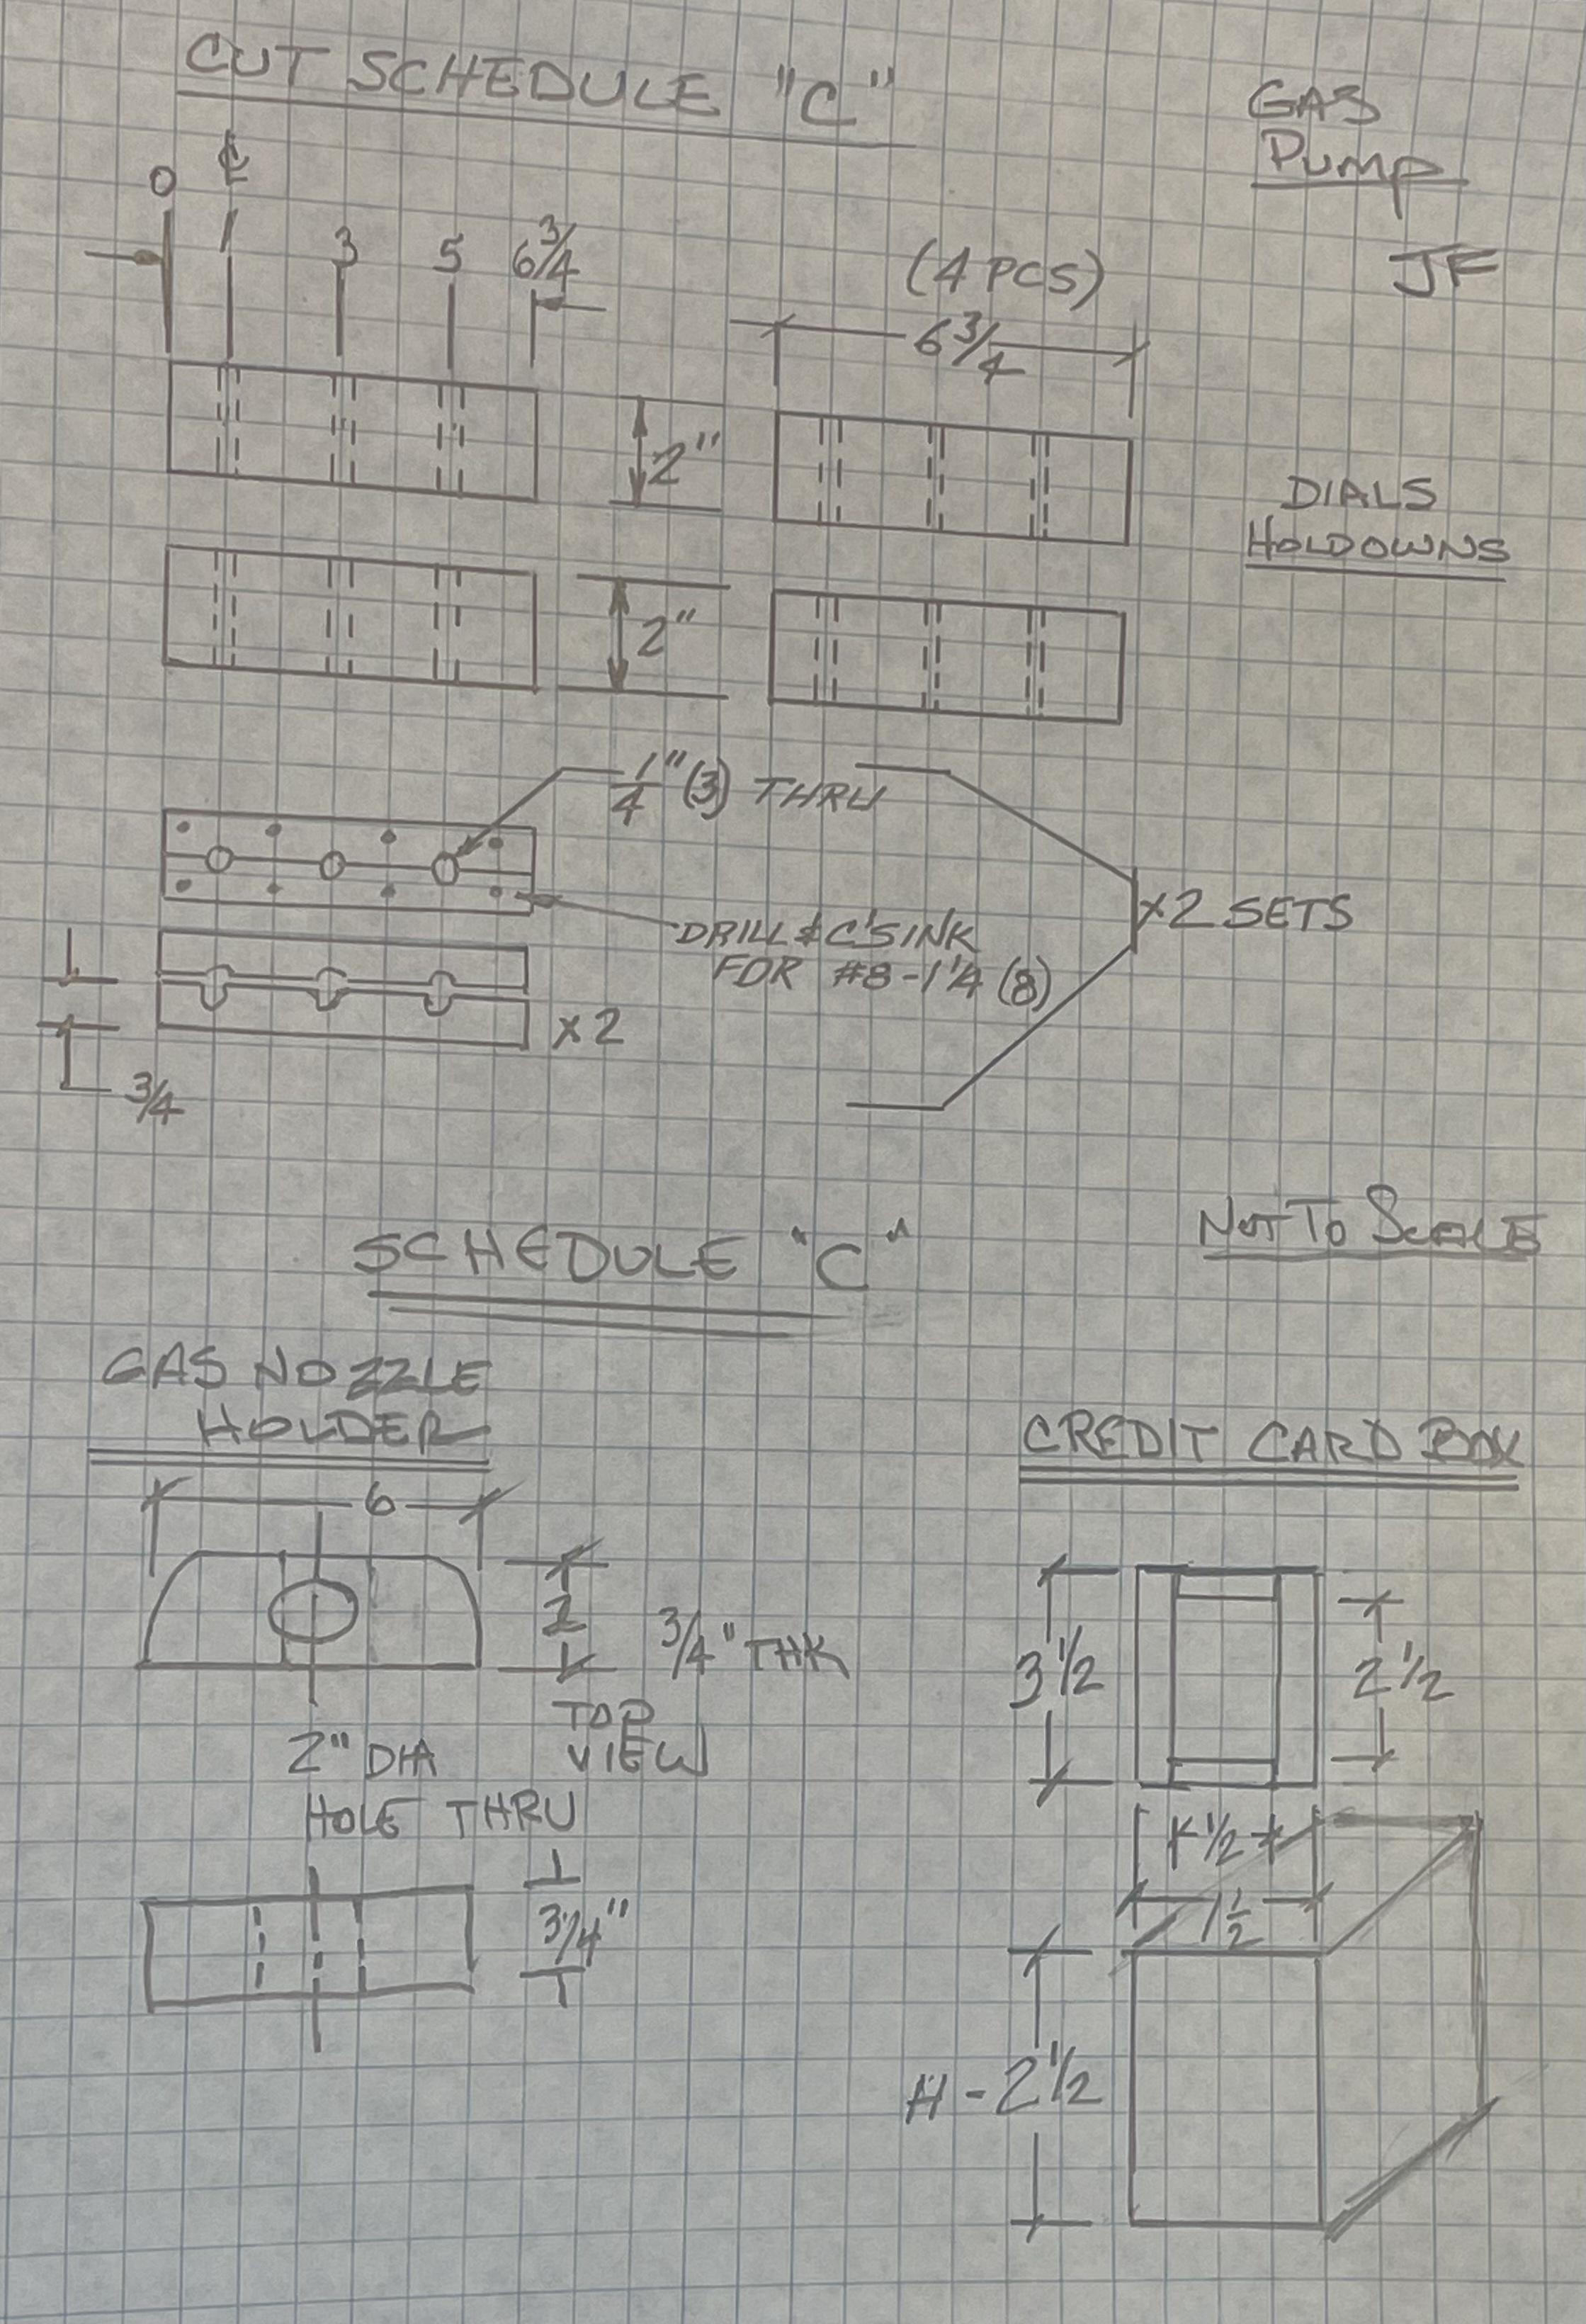 CUT SCHEDULE "C"
GAS
PUMP
JF
0 ℄
1 3 5 6 3/4
(4 PCS)
6 3/4
2"
DIALS
HOLDOWNS
2"
1/4" (3) THRU
DRILL & C'SINK
FOR #8-1 1/4 (8)
x2 SETS
x2
3/4
NOT TO SCALE
SCHEDULE "C"
GAS NOZZLE
HOLDER
6
2
3/4" THK
TOP
VIEW
2" DIA
HOLE THRU
3/4"
CREDIT CARD BOX
3 1/2
2 1/2
1/2
1 1/2
H - 2 1/2